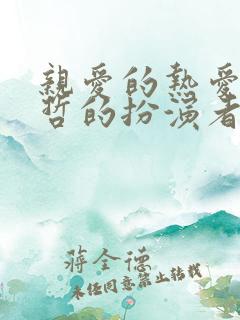 親愛的熱愛
哲的扮演者
蔣全德
未經同意禁止轉載